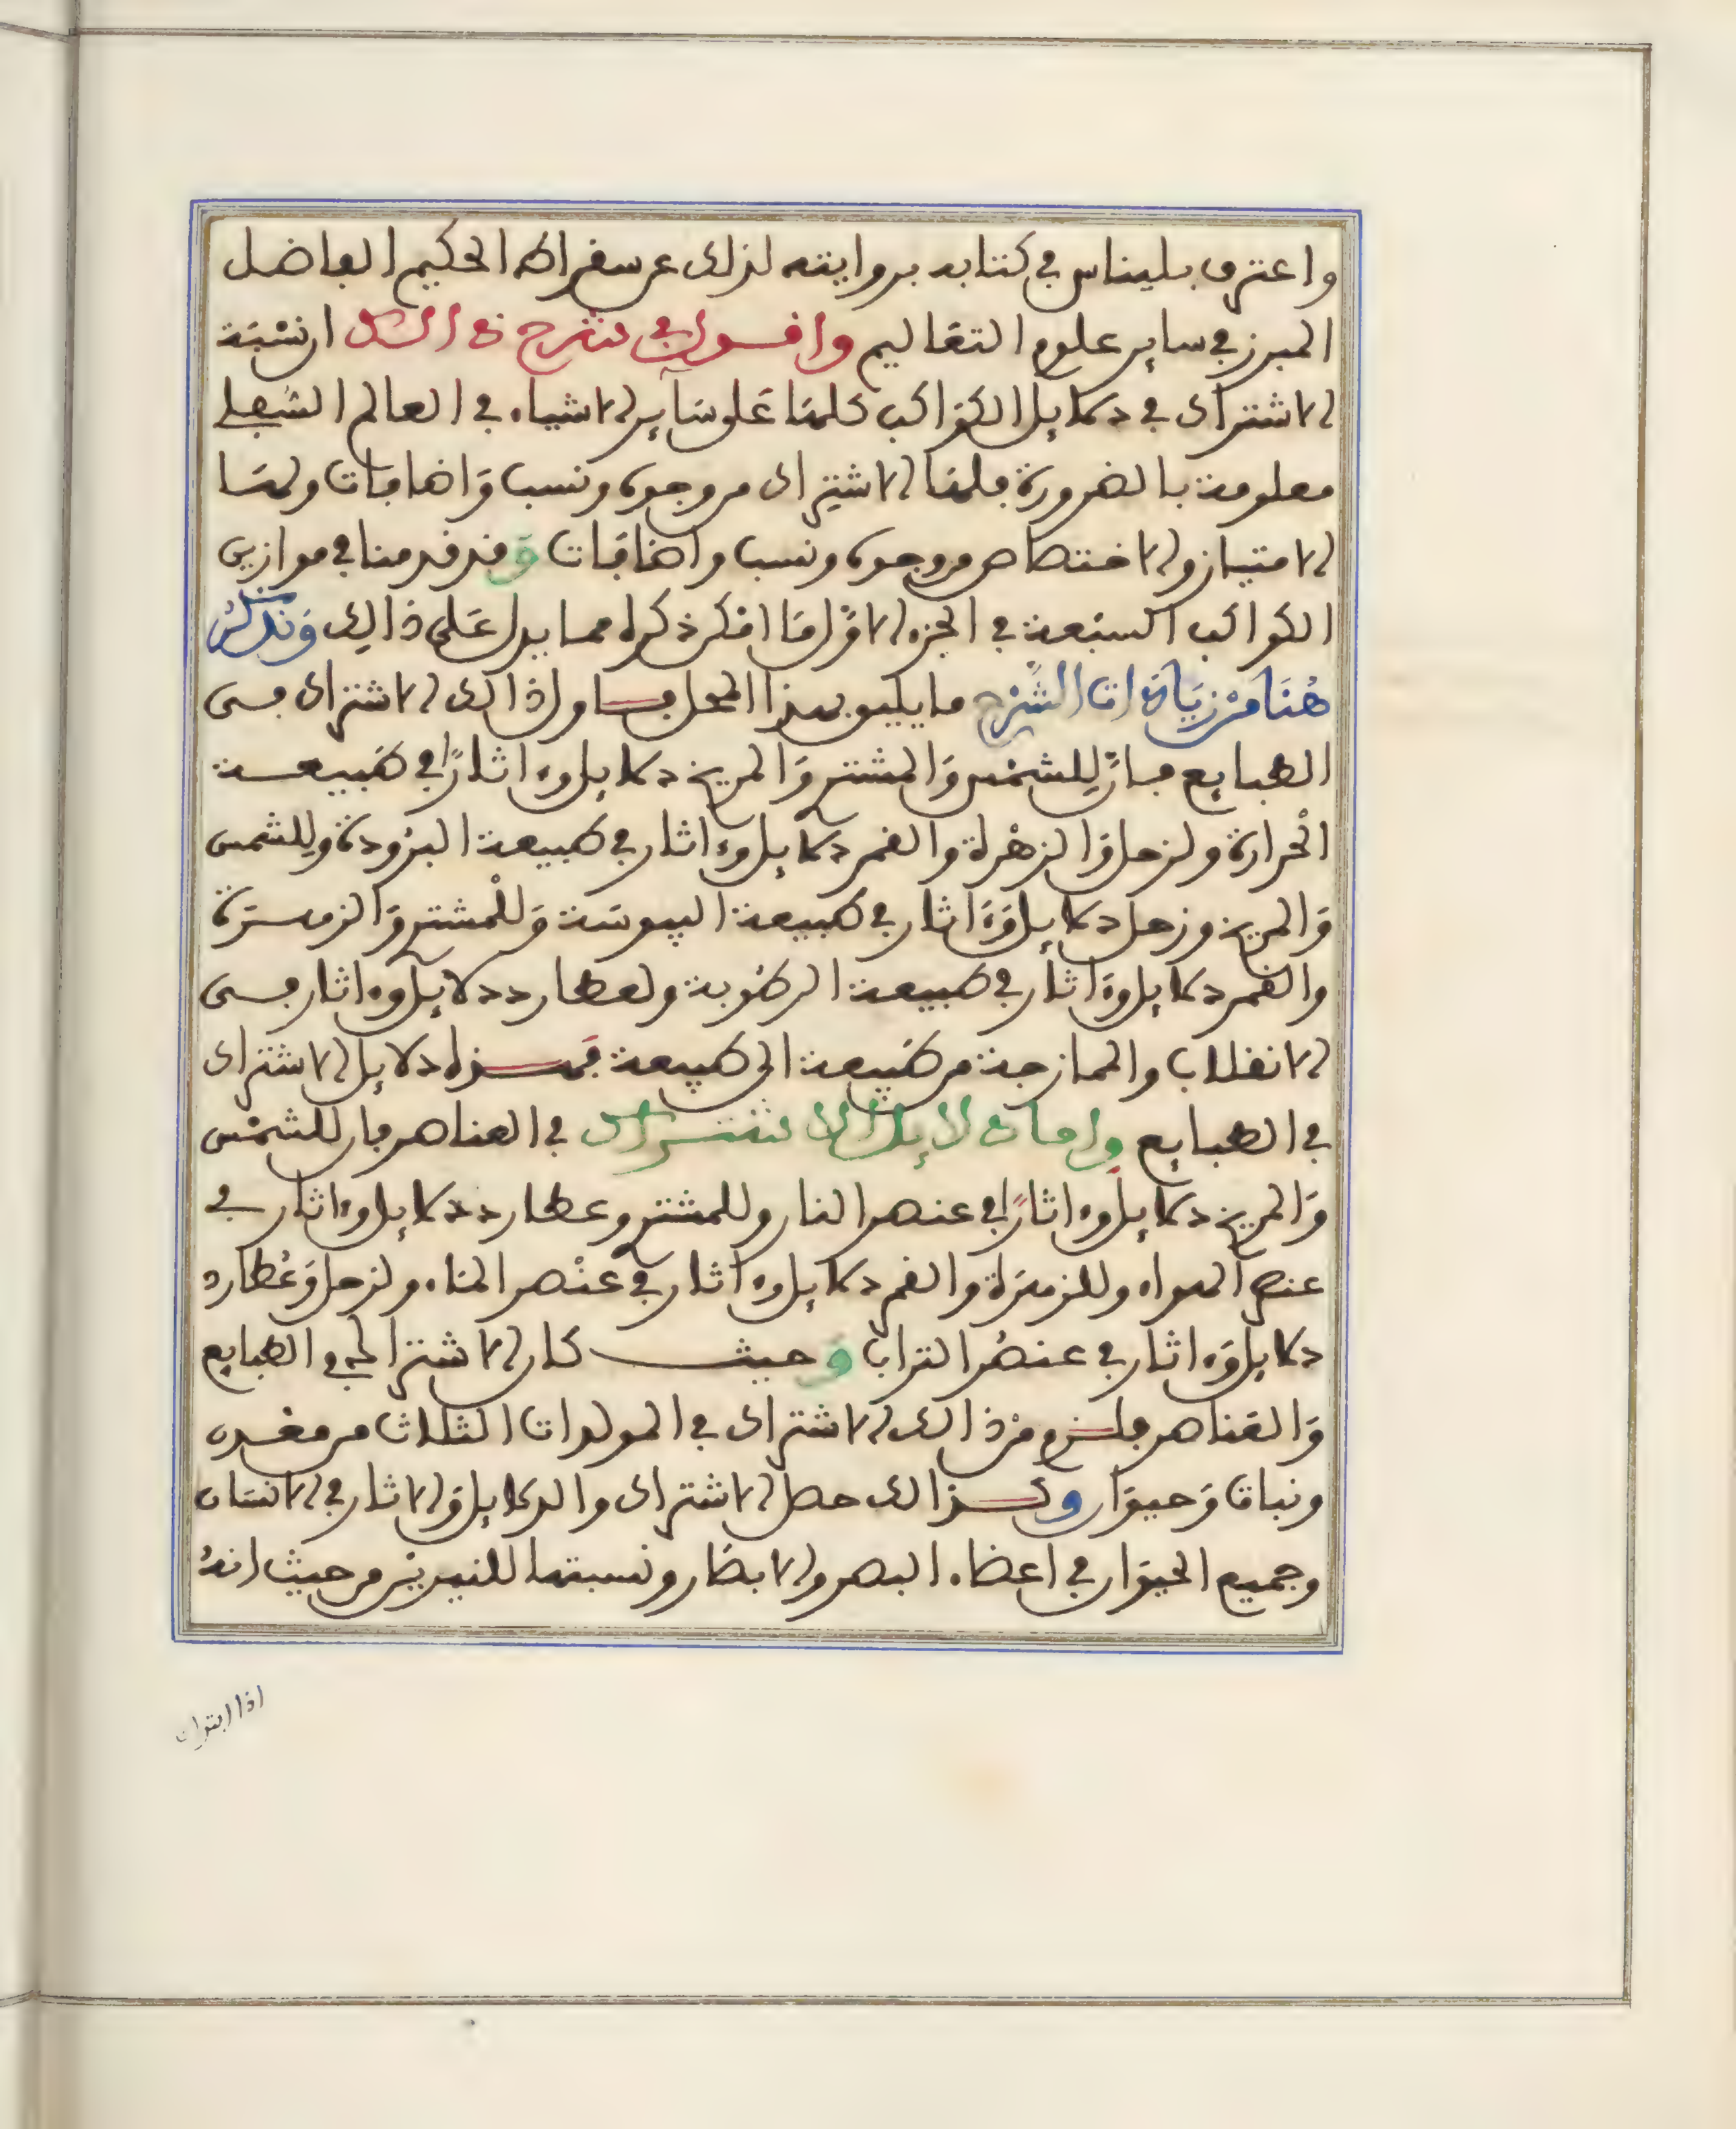 واعترف بليناس في كتابه بروايته لذلك عن سقراط الحكيم الفاضل
المبرز في ساير علوم التعاليم واقول في شرح ذلك ان نسبة
الاشتراك في دلايل الكواكب كلها على ساير الاشياء في العالم السفلي
معلومة بالضرورة فلها الاشتراك من وجوه ونسب واضافات ولها
الامتياز والاختصاص من وجوه ونسب واضافات وقد قدمنا في موازين
الكواكب السبعة في الجزء الاول ما امكن ذكره مما يدل على ذالك ونذكر
هنا من زيادات الشرح ما يليق بهذا المحل فاول ذالك الاشتراك في
الطبايع فان للشمس والمشتري والمريخ دلايل واثارا في طبيعة
الحرارة ولزحل والزهرة والقمر دلايل واثار في طبيعة البرودة وللشمس
والمريخ وزحل دلايل واثار في طبيعة اليبوسة وللمشتري والزهرة
والقمر دلايل واثار في طبيعة الرطوبة ولعطارد دلايل واثار في
الانقلاب والممازجة من طبيعة الى طبيعة فهذه دلايل الاشتراك
في الطبايع واما دلايل الاشتراك في العناصر فان للشمس
والمريخ دلايل واثارا في عنصر النار وللمشتري وعطارد دلايل واثار في
عنصر الهواء وللزهرة والقمر دلايل واثار في عنصر الماء ولزحل وعطارد
دلايل واثار في عنصر التراب وحيث كان الاشتراك في الطبايع
والعناصر فلزم من ذالك الاشتراك في المولدات الثلاث من معدن
ونبات وحيوان وكذالك حصل الاشتراك والدلايل والاثار في الانسان
وجميع الحيوان في اعضاء البصر والابصار ونسبتها للنيرين من حيث انه
اذا ابتدات